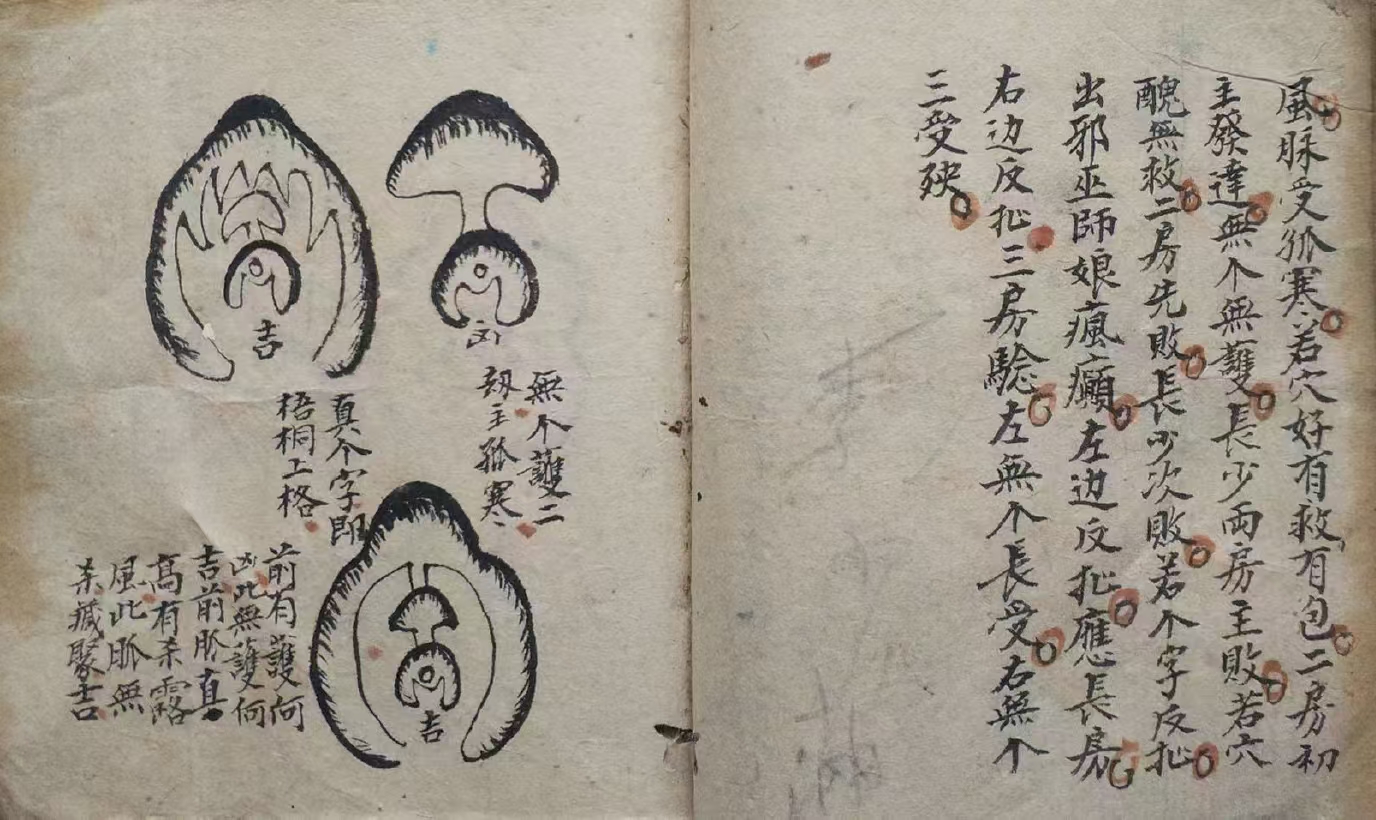 風脉受孤寒若穴好有救有包二房初
主發達無个無護長少両房主敗若穴
醜無救二房先敗長少次敗若个字反
出邪巫師娘瘋癲左边反應長房
右边反三房驗左無个長受右無个
三受殃
凶
無个護二
主孤寒
吉
真个字即
梧桐工格
吉
前有護何
凶此無護何
吉前脈真
高有杀露
風此脈無
杀藏聚吉